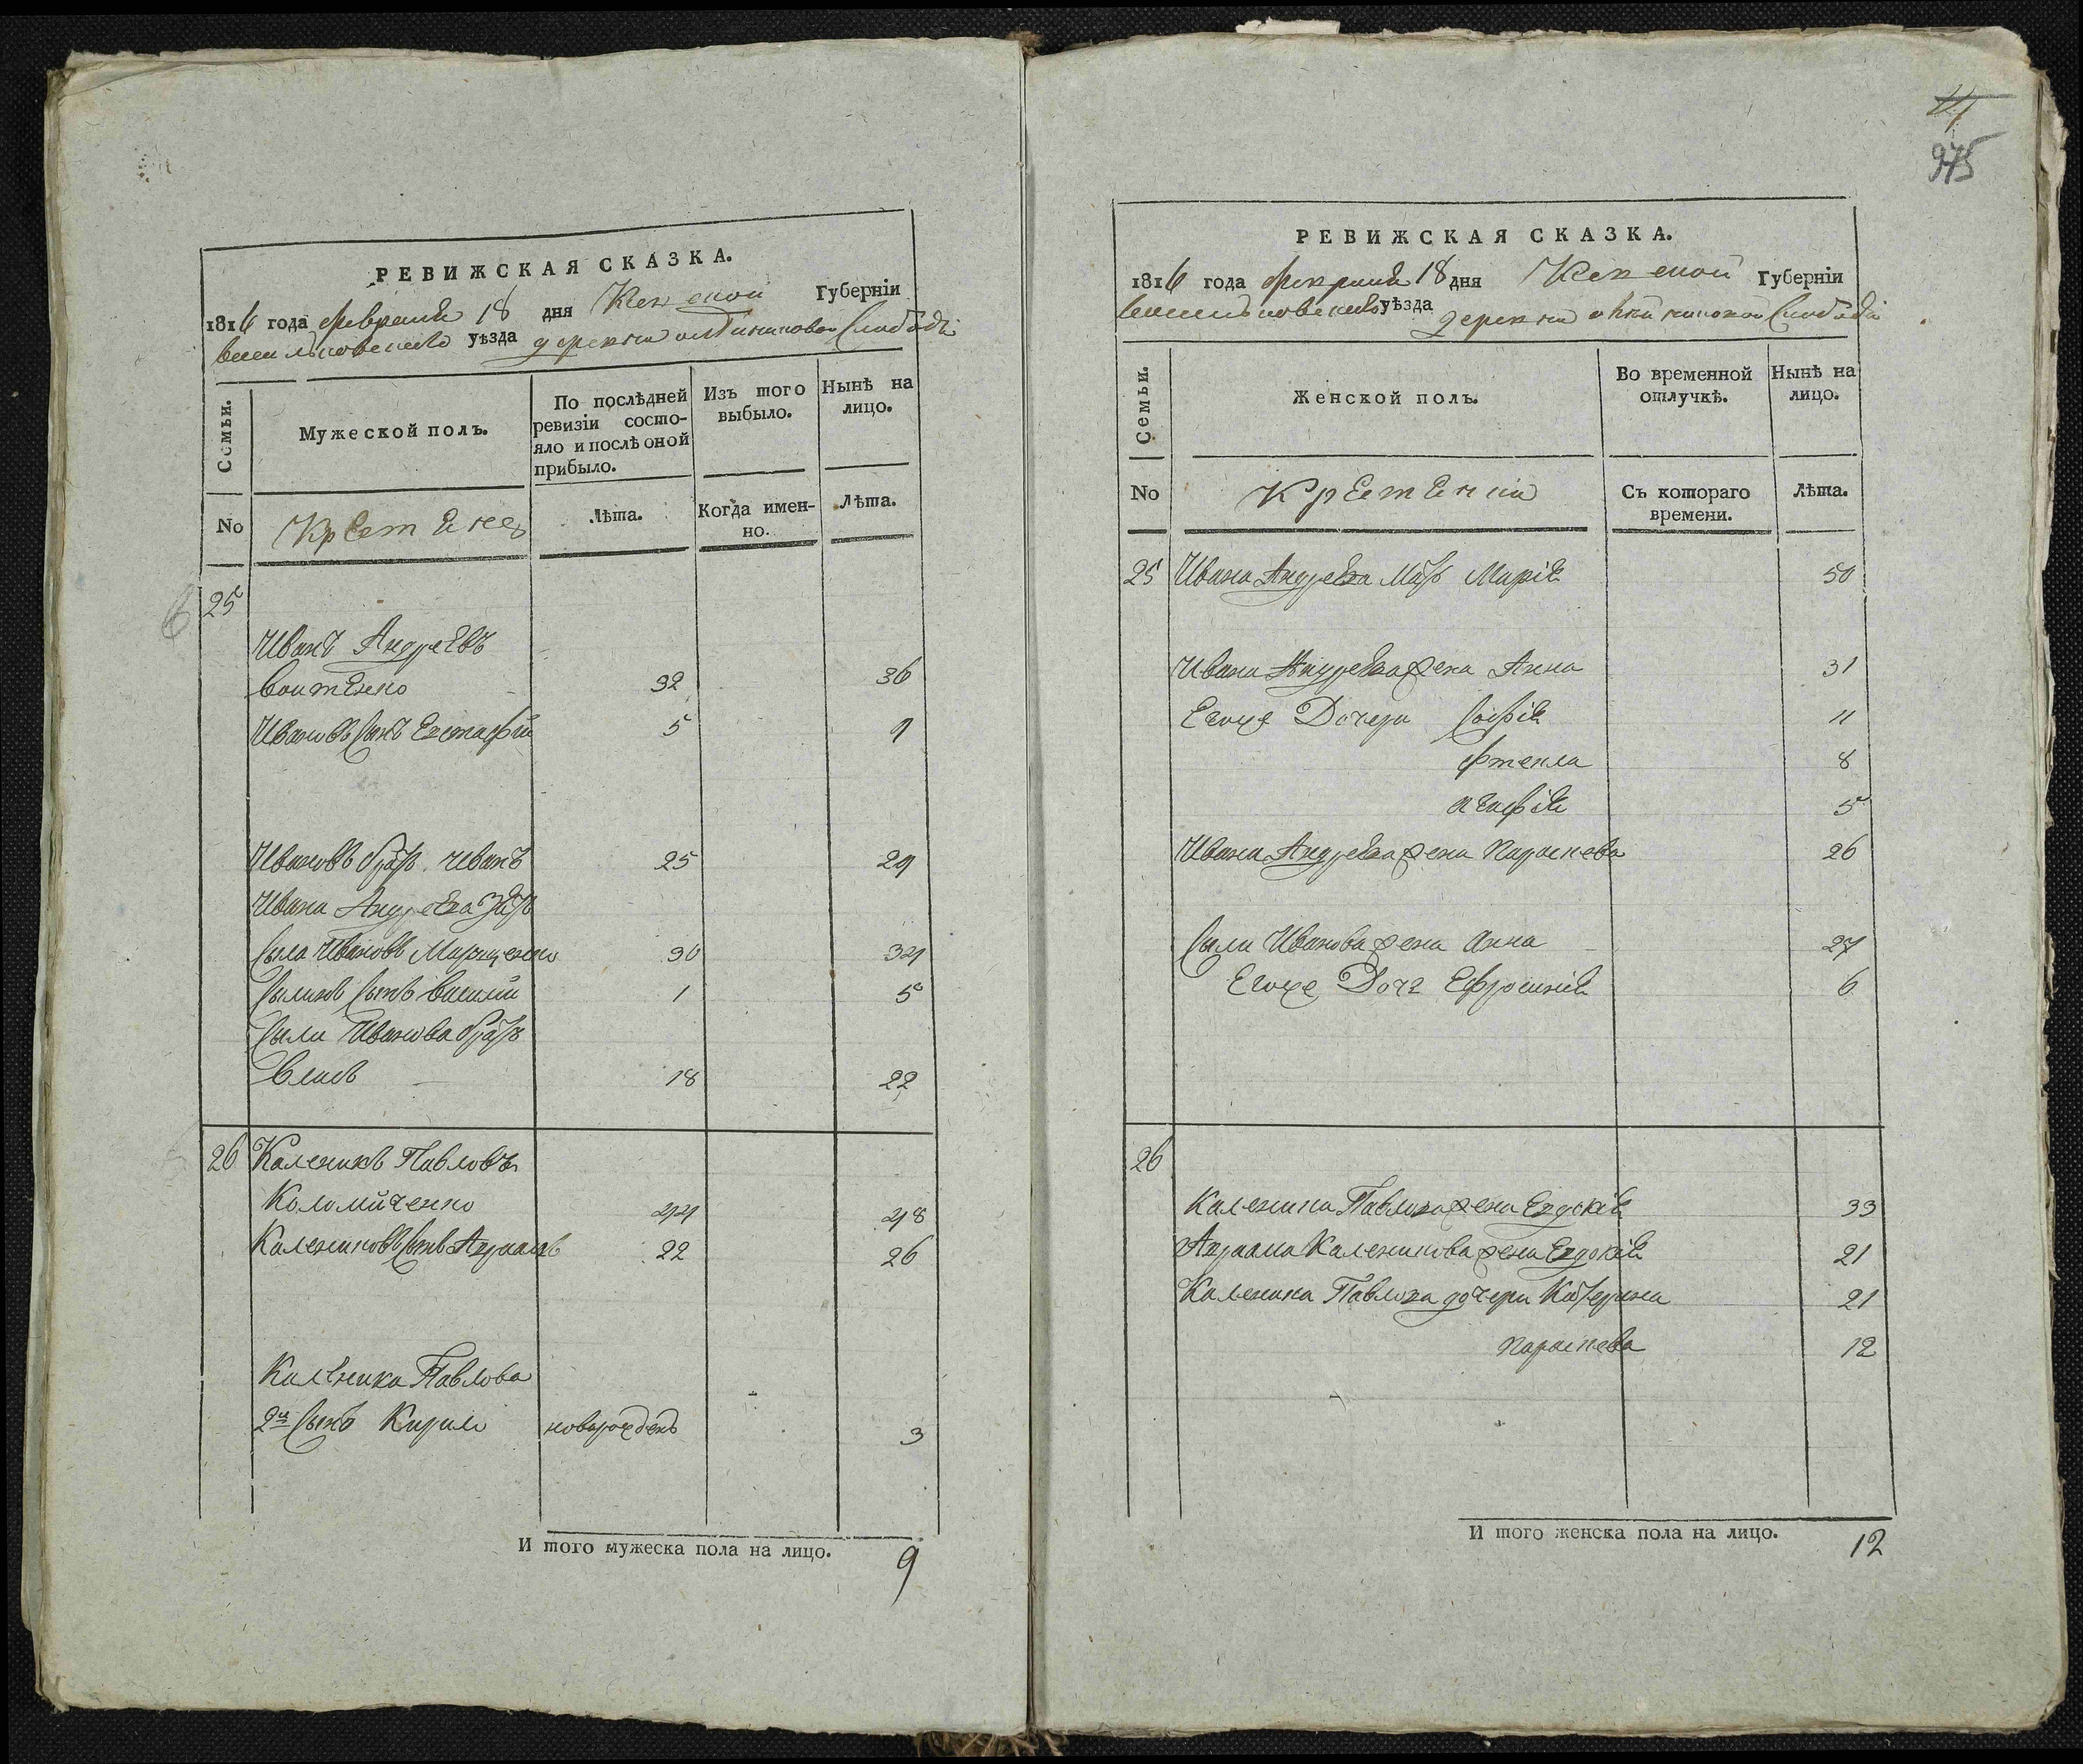 РЕВИЖСКАЯ СКАЗКА.
1816 года февраля 18 дня Кіевской Губерніи
васильковскаго уѣзда деревни Слободы
Семьи.
Мужеской полъ.
По послѣдней ревизіи состо-
яло и послѣ оной
прибыло.
Изъ того
выбыло.
Нынѣ на
лицо.
No
Крестяне
Лѣта.
Когда имен-
но.
Лѣта.
25
Иванъ Андреевъ
Воитенко 32 36
Ивановъ сынъ Евстафий 5 9
Ивановъ братъ иванъ 25 29
Ивана Андреева зять
Сыла Ивановъ Марищенко 30 34
Сылинъ сынъ василий 1 5
Сылы Иванова братъ
власъ 18 22
26 Каленикъ Павловъ
Коломийченко 44 48
Калениковъ сынъ Авраамъ 22 26
Каленика Павлова
2й сынъ Кирило новорожденъ 3
И того мужеска пола на лицо. 9
975
РЕВИЖСКАЯ СКАЗКА.
1816 года февраля 18 дня Кіевской Губерніи
васильковскаго уѣзда деревни Слободы
Семьи.
Женской полъ.
Во временной
отлучкѣ.
Нынѣ на
лицо.
No
Крестянки
Съ котораго
времени.
Лѣта.
25 Ивана Андреева мать Марія 50
Ивана Андреева жена Анна 31
Егоже Дочери Софія 11
Фтекла 8
агафія 5
Ивана Андреева жена Параскева 26
Сылы Иванова жена Анна 27
Егоже Дочь Ефросинія 6
26
Каленика Павлова жена Евдокія 33
Авраама Каленикова жена Евдокія 21
Каленика Павлова дочери Катерина 21
параскева 12
И того женска пола на лицо. 12